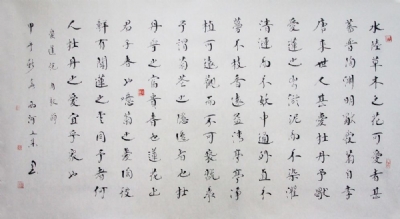 水陸草木之花可愛者甚
蕃晉陶淵明獨愛菊自李
唐来世人甚愛牡丹予獨
愛蓮之出淤泥而不染濯
清漣而不妖中通外直不
蔓不枝香遠益清亭亭淨
植可遠觀而不可褻玩焉
予謂菊花之隱逸者也牡
丹花之富貴者也蓮花之
君子者也噫菊之愛陶後
鮮有聞蓮之愛同予者何
人牡丹之愛宜乎衆矣
愛蓮説周敦頤
甲午